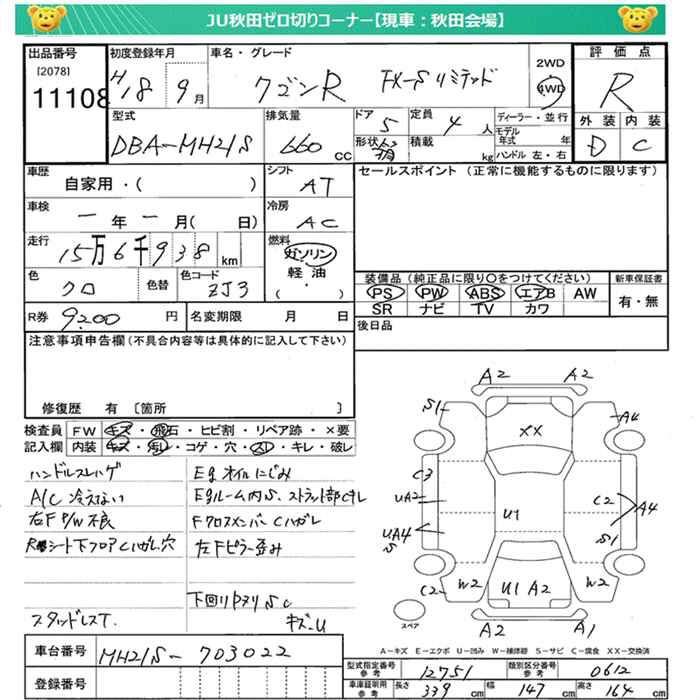 JU秋田ゼロ切りコーナー【現車：秋田会場】
出品番号
[2078]
11108
初度登録年月
H18 9月
車名・グレード
ワゴンR FX-Sリミテッド
2WD
4WD
評価点
R
外装 内装
D C
型式
DBA-MH21S
排気量
660 cc
ドア 5
形状
定員 4 人
積載 kg
ディーラー・並行
モデル年式 年
ハンドル 左・右
車歴
自家用・( )
シフト
AT
セールスポイント (正常に機能するものに限ります)
車検
一年一月( 日)
冷房
AC
走行
15万6千938 km
燃料
ガソリン
軽油
( ・ )
色
クロ
色替
色コード
ZJ3
装備品 (純正品に限り○をつけてください)
PS PW ABS エアB AW
SR ナビ TV カワ
新車保証書
有・無
R券 9200 円
名変期限 月 日
後日品
注意事項申告欄(不具合内容等は具体的に記入して下さい)
修復歴 有 〔箇所 〕
検査員記入欄
FW キズ・飛石・ヒビ割・リペア跡・×要
内装 キズ・汚レ・コゲ・穴・スレ・キレ・破レ
ハンドルスレハゲ
A/C 冷えない
右F P/W 不良
シート下フロアCハガレ穴
スタッドレスT.
Egオイルにじみ
Egルーム内S. ストラット部Cサレ
FクロスメンバーCハガレ
左Fピラー歪み
下回りサヌリSC
キズーU
A2 A2
S1
A4
XX
C3
UA2
UA4
S
U1
C2
A4
S1
W2
C2
U1 A2
W2
A2
A1
スペア
A-キズ E-エクボ U-凹み W-補修跡 S-サビ C-腐食 XX-交換済
車台番号
MH21S-703022
登録番号
型式指定番号
参考
12751
類別区分番号
参考
0612
車庫証明用
参考
長さ 339 cm
幅 147 cm
高さ 164 cm